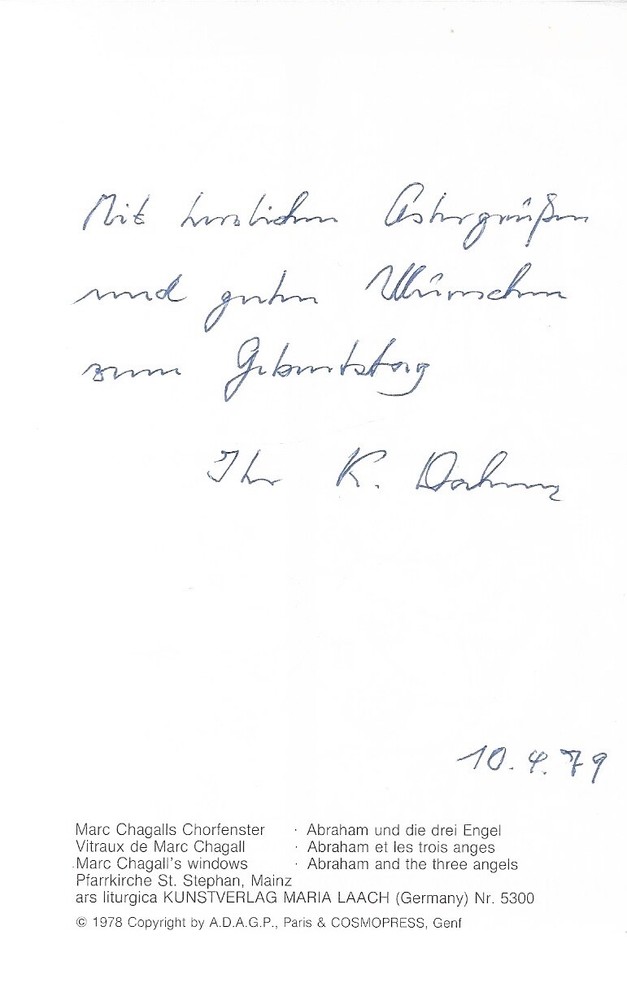 Mit herzlichen Ostergrüßen
und guten Wünschen
zum Geburtstag
Ihr K.
10.4.79
Marc Chagalls Chorfenster · Abraham und die drei Engel
Vitraux de Marc Chagall · Abraham et les trois anges
Marc Chagall's windows · Abraham and the three angels
Pfarrkirche St. Stephan, Mainz
ars liturgica KUNSTVERLAG MARIA LAACH (Germany) Nr. 5300
© 1978 Copyright by A.D.A.G.P., Paris & COSMOPRESS, Genf